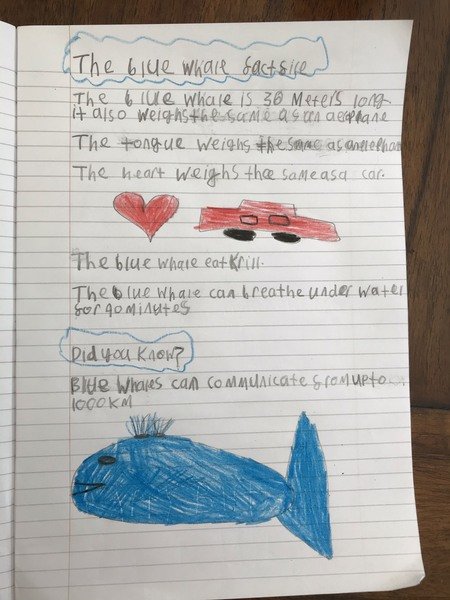 The blue whale factfile
The blue whale is 30 Meters long
it also weighs the same as an aeroplane
The tongue weighs the same as an elephan
The heart weighs the same as a car.
The blue whale eat Krill.
The blue whale can breathe under water
for 90 minutes
Did you Know?
Blue whales can communicate from up to
1000KM